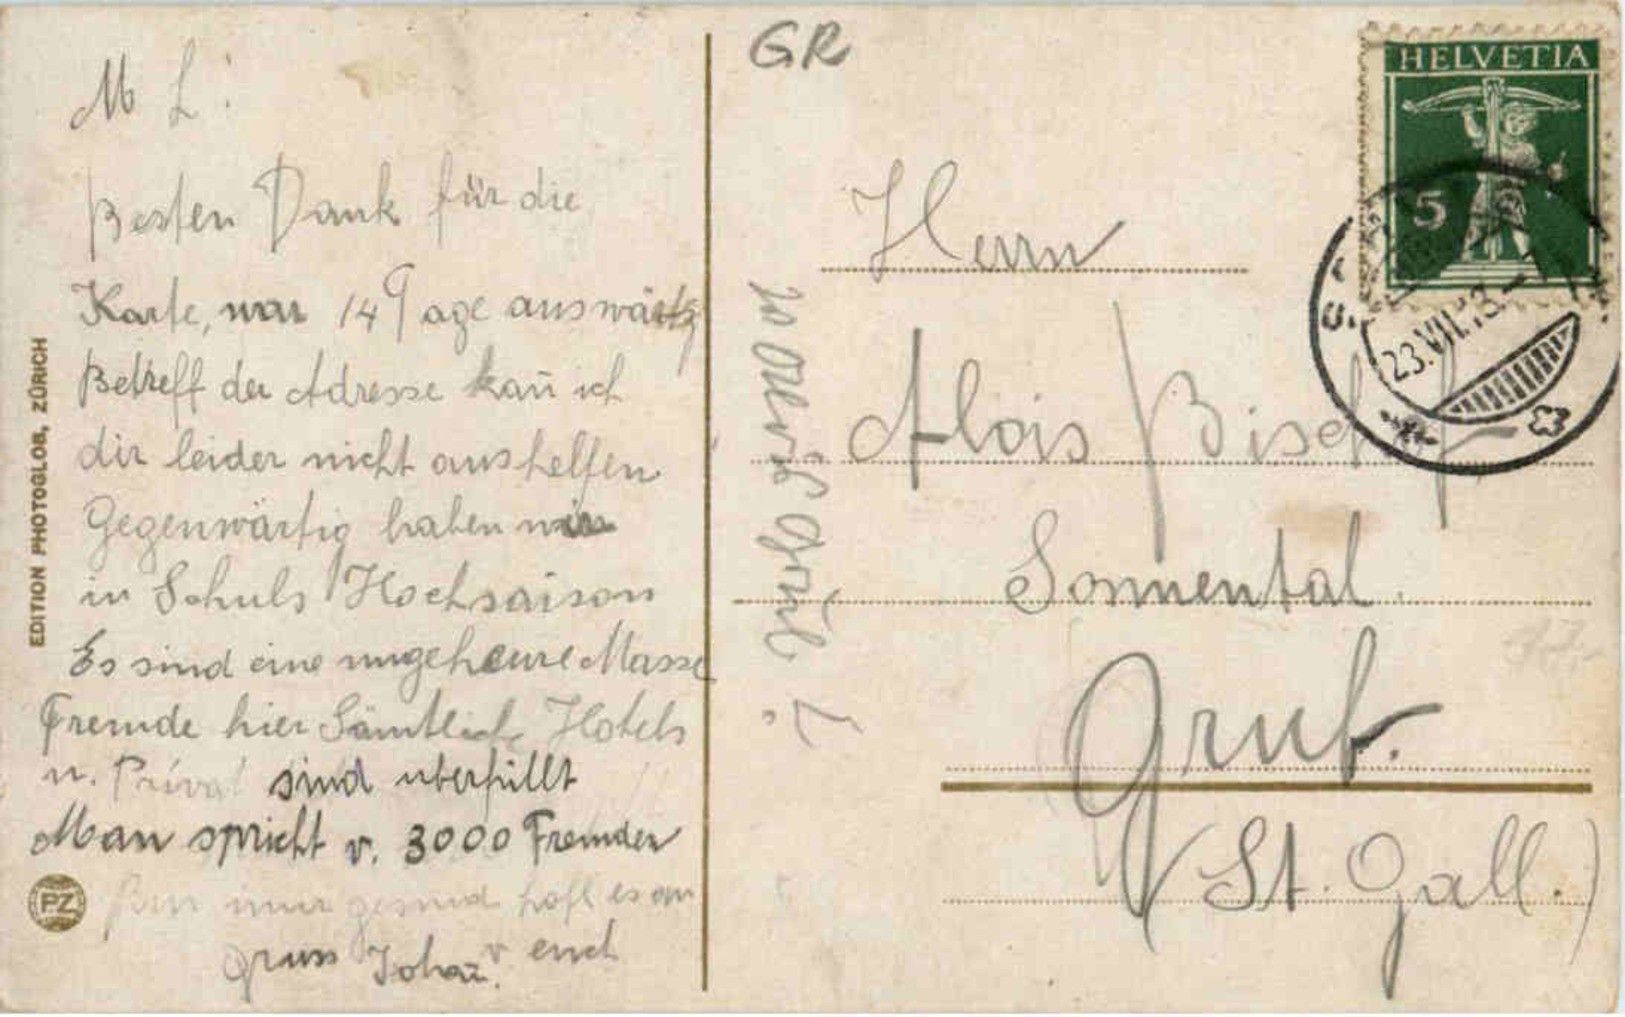 M L :
Besten Dank für die
Karte, war 14 Tage auswärts
Betreff der Adresse kan̄ ich
dir leider nicht aushelfen
Gegenwärtig haben wir
in Schuls Hochsaison
Es sind eine ungeheure Masse
Fremde hier Sämtliche Hotels
u. Privat sind uberfüllt
Man spricht v. 3000 Fremden
Bin immer gesund hoff es an
Gruss Johan̄ v euch
EDITION PHOTOGLOB, ZÜRICH
PZ
GR
HELVETIA
5
23.VII.13.
Herrn
Alois Bischof
Sonnental.
Grub.
(St. Gall.)